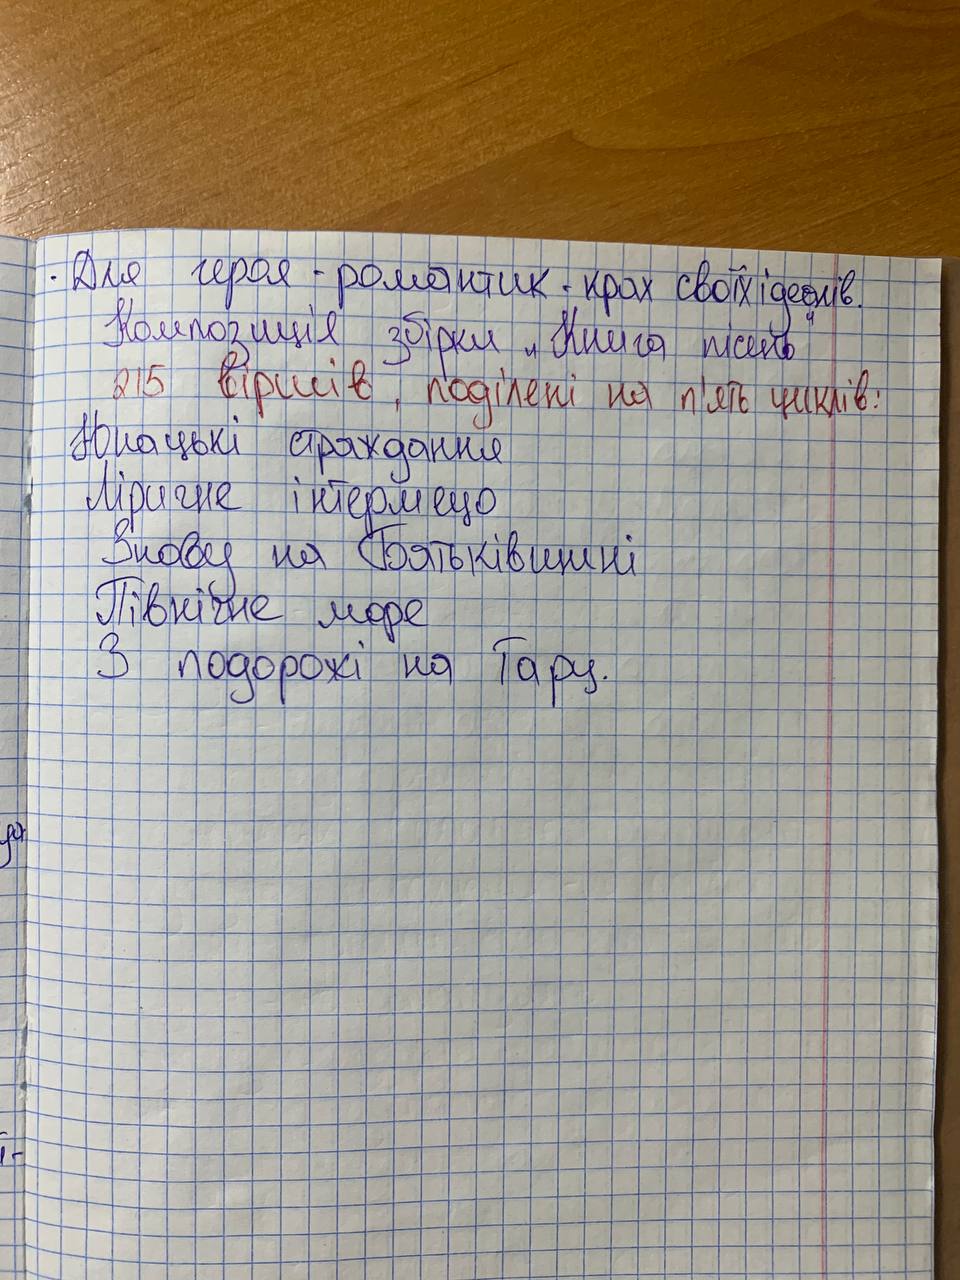 · Для героя - романтик - крах своїх ідеалів.
Композиція збірки „Книга пісень"
215 віршів, поділені на п'ять циклів:
Юнацькі страждання
Ліричне інтермецо
Знову на Батьківщині
Північне море
З подорожі на Гарц.